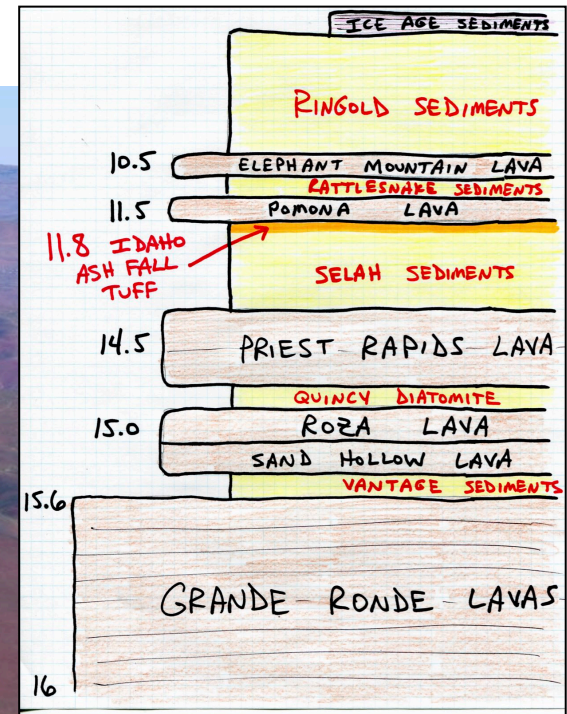 ICE AGE SEDIMENTS
RINGOLD SEDIMENTS
10.5 ELEPHANT MOUNTAIN LAVA
RATTLESNAKE SEDIMENTS
11.5 POMONA LAVA
11.8 IDAHO
ASH FALL
TUFF
SELAH SEDIMENTS
14.5 PRIEST RAPIDS LAVA
QUINCY DIATOMITE
15.0 ROZA LAVA
SAND HOLLOW LAVA
VANTAGE SEDIMENTS
15.6
GRANDE RONDE LAVAS
16